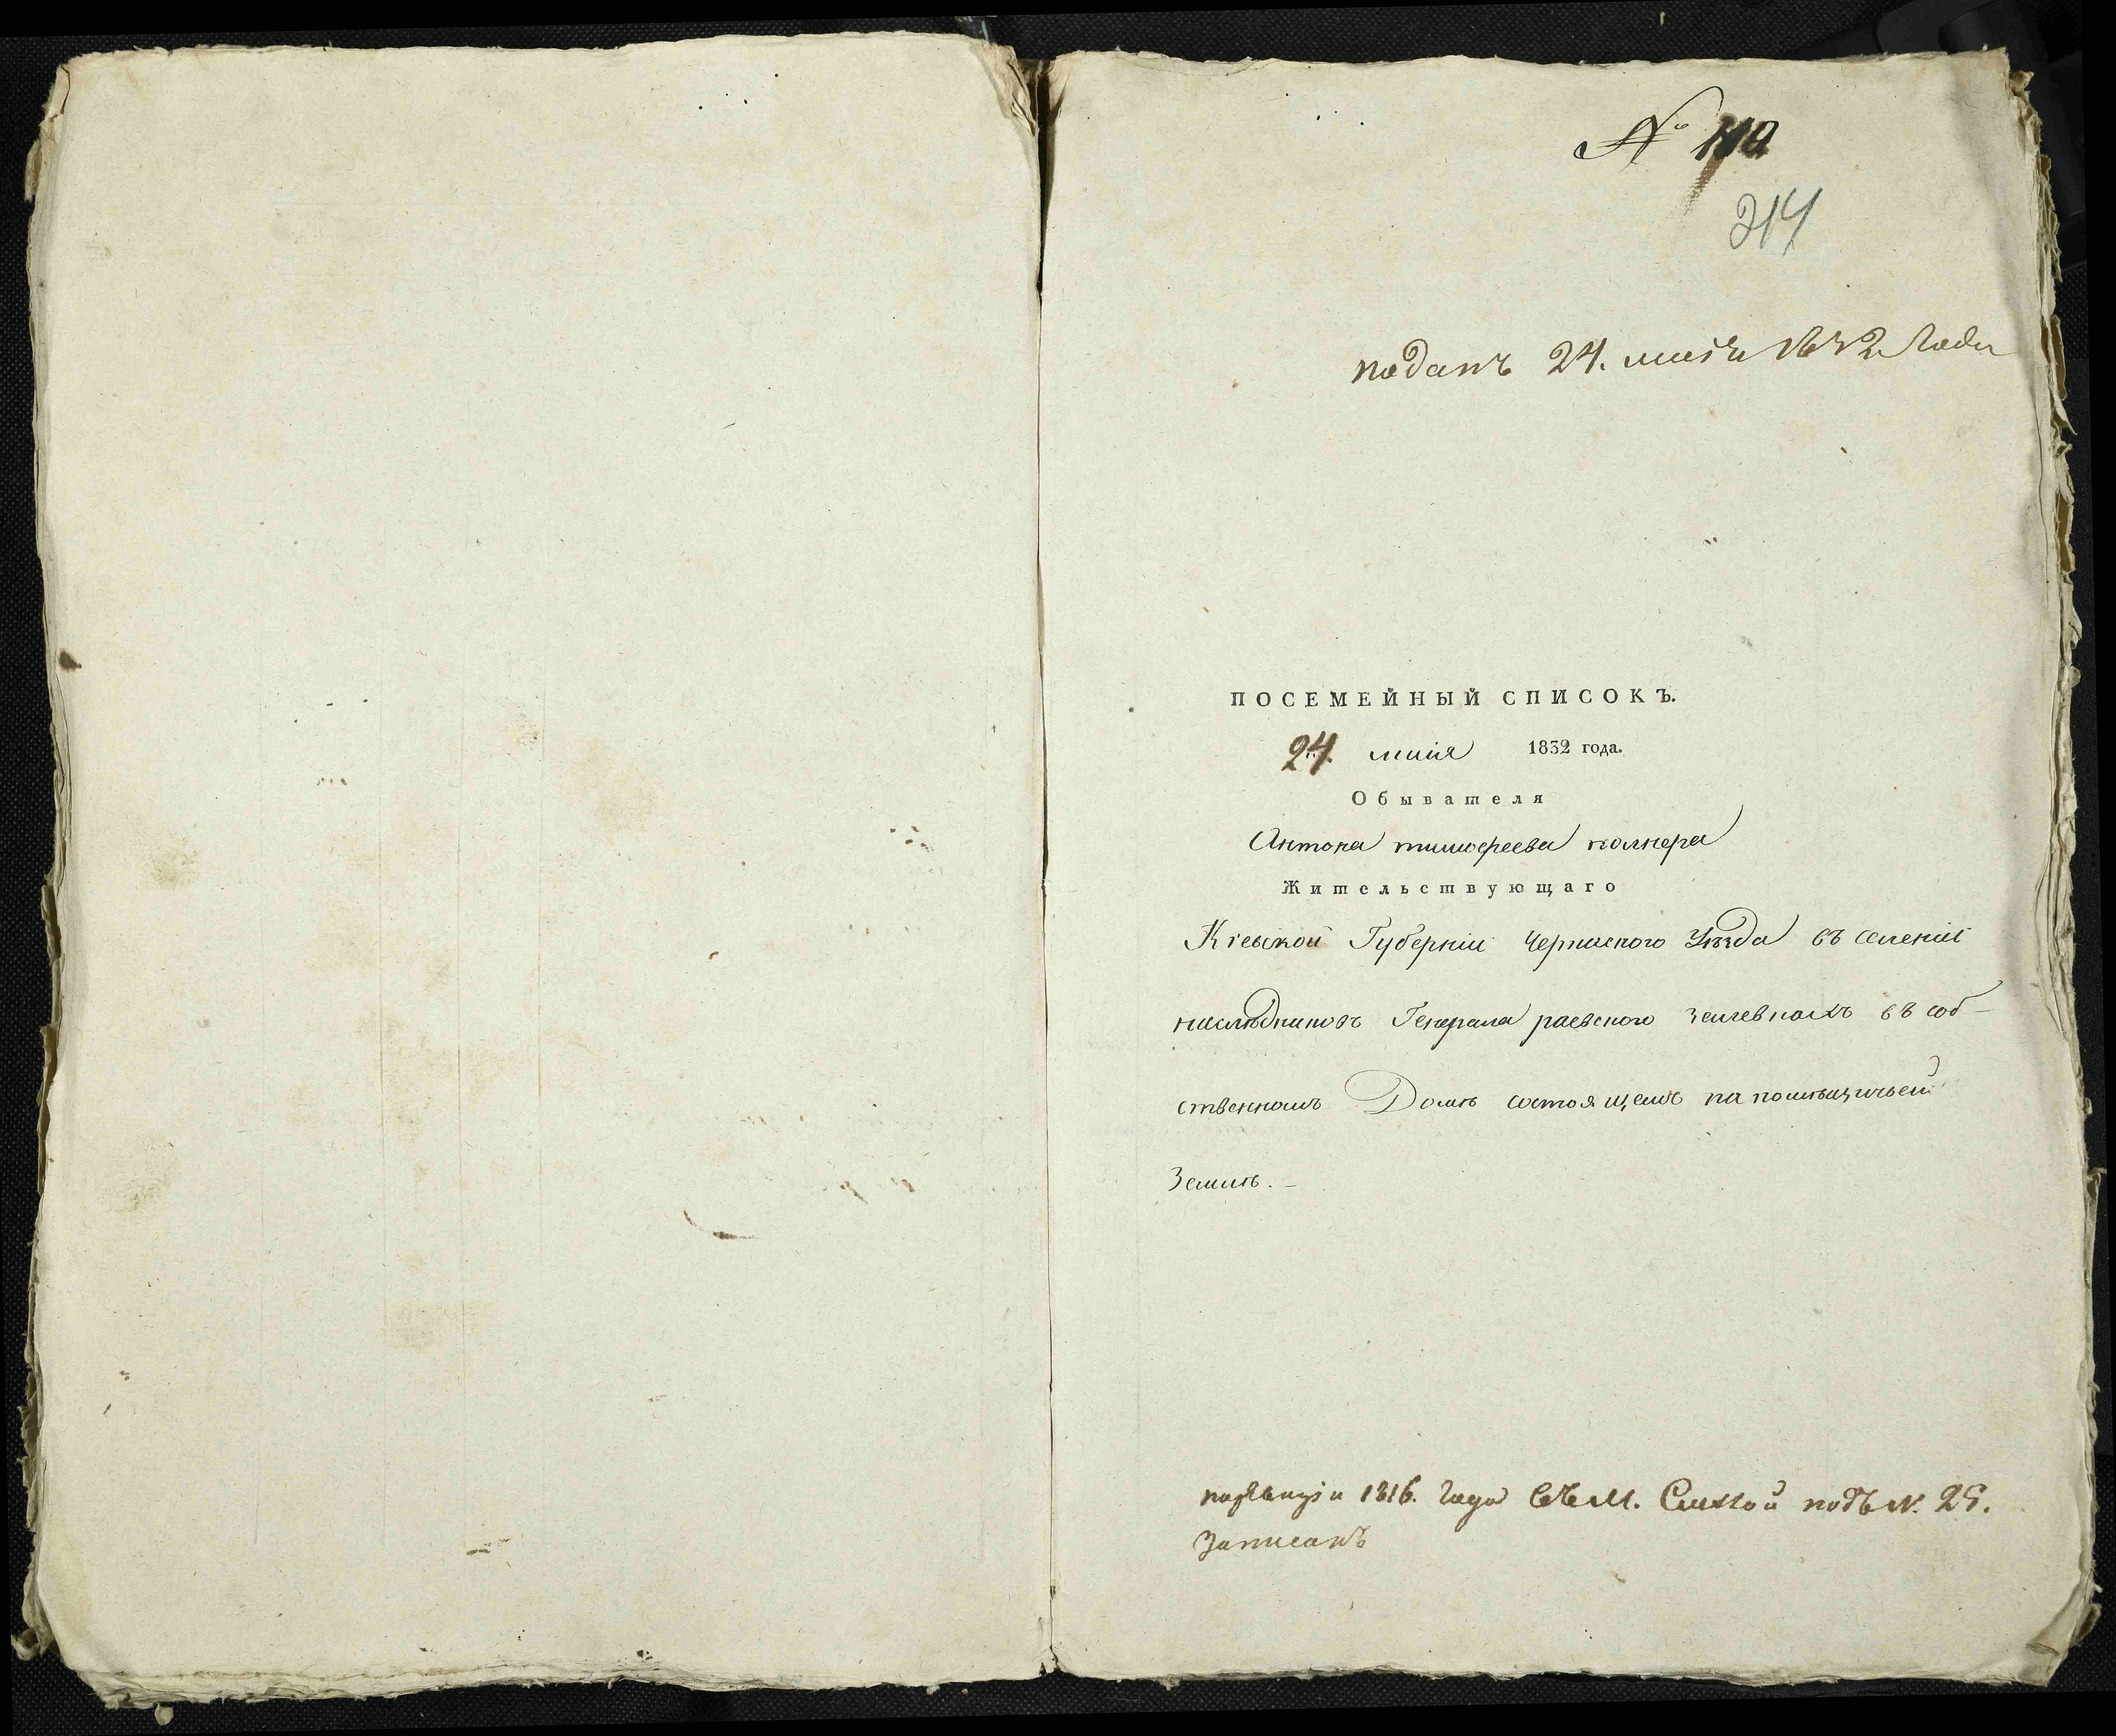 № 110
214
поданъ 24. маія 1832 Года
ПОСЕМЕЙНЫЙ СПИСОКЪ.
24. маія 1832 года.
Обывателя
Антона тимофеева
Жительствующаго
Кіевской Губерніи Черкаского Уѣзда въ селеніи
наслѣдниковъ Генерала раевского въ соб-
ственномъ Домѣ состоящемъ на помѣщичьей
Землѣ. –
поревизіи 1816. Года въ М. подъ N. 25.
Записанъ